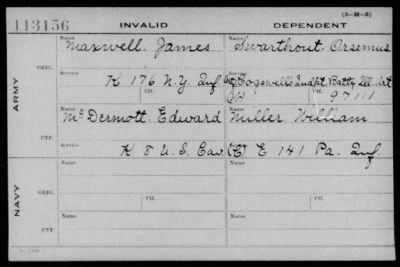 (3-H-3)
113156 INVALID DEPENDENT
Name Name
Maxwell. James Swarthout. Orsemus
ORIG. Service Service
K 176 N.Y. Inf Cogswell's Indpt. Batty Ill. Art
Ctf. Ctf. 97111
ARMY
Name Name
McDermott. Edward Miller William
CTF. Service
K 8 U.S. Cav. (C) E 141 Pa. Inf.
Name Name
ORIG. Service Service
Ctf. Ctf.
NAVY
Name Name
CTF.